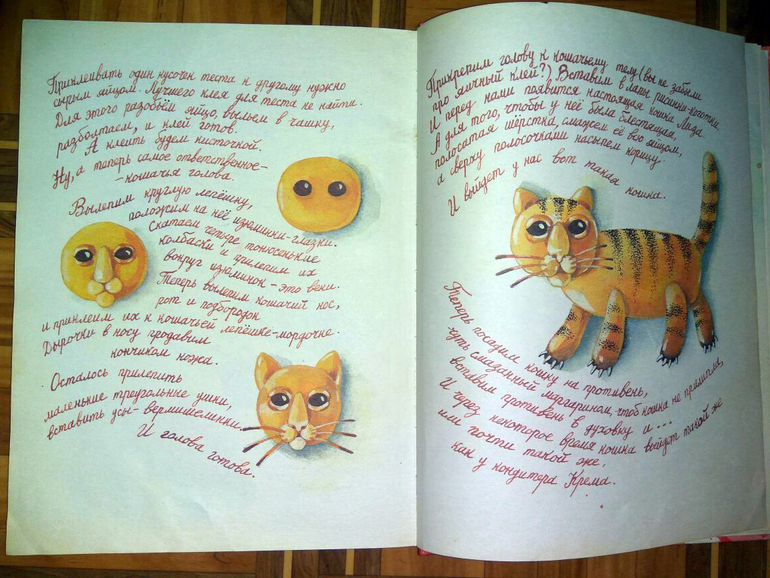 Приклеивать один кусочек теста к другому нужно
сырым яйцом. Лучшего клея для теста не найти.
Для этого разобьём яйцо, выльем в чашку,
разболтаем, и клей готов.
А клеить будем кисточкой.
Ну, а теперь самое ответственное -
- кошачья голова.
Вылепим круглую лепёшку,
положим на неё изюминки-глазки.
Скатаем четыре тоненькие
колбаски и прилепим их
вокруг изюминок - это веки.
Теперь вылепим кошачий нос,
рот и подбородок
и приклеим их к кошачьей лепёшке-мордочке.
Дырочки в носу продавим
кончиком ножа.
Осталось прилепить
маленькие треугольные ушки,
вставить усы - вермишелинки.
И голова готова.
Прикрепим голову к кошачьему телу (вы не забыли
про яичный клей?) Вставим в лапы рисинки-коготки
И перед нами появится настоящая кошка Лада.
А для того, чтобы у неё была блестящая,
полосатая шёрстка, смажем её всю яйцом,
а сверху полосочками насыпем корицу.
И выйдет у нас вот такая кошка.
Теперь посадим кошку на противень,
чуть смазанный маргарином, чтоб кошка не прилипла,
вставим противень в духовку и...
И через некоторое время кошка выйдет такой же
или почти такой же,
как у кондитера Крема.